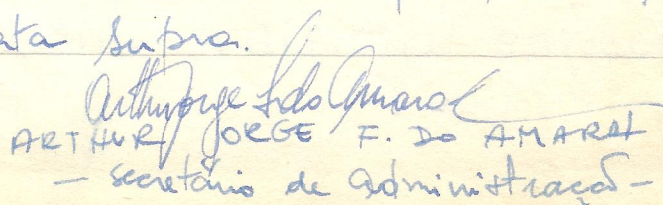 ata supra.
Arthur Jorge F. do Amaral
ARTHUR JORGE F. DO AMARAL
- Secretário de Administração -